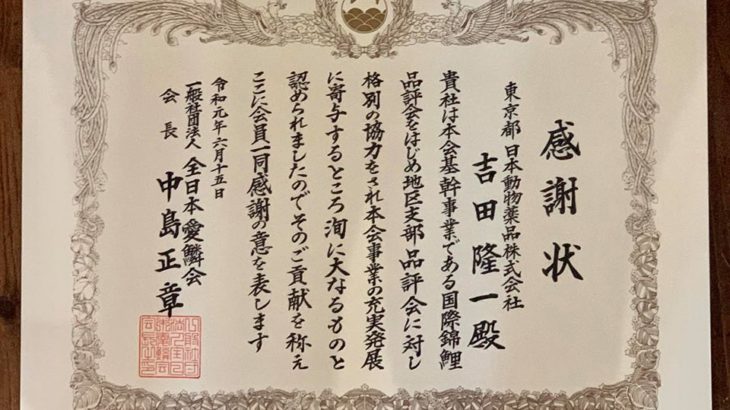 感謝状
東京都 日本動物薬品株式会社
吉田隆一殿
貴社は本会基幹事業である国際錦鯉
品評会をはじめ地区支部品評会に対し
格別の協力をされ本会事業の充実発展
に寄与するところ洵に大なるものと
認められましたのでそのご貢献を称え
ここに会員一同感謝の意を表します
令和元年六月十五日
一般社団法人 全日本愛鱗会
会長 中島正章